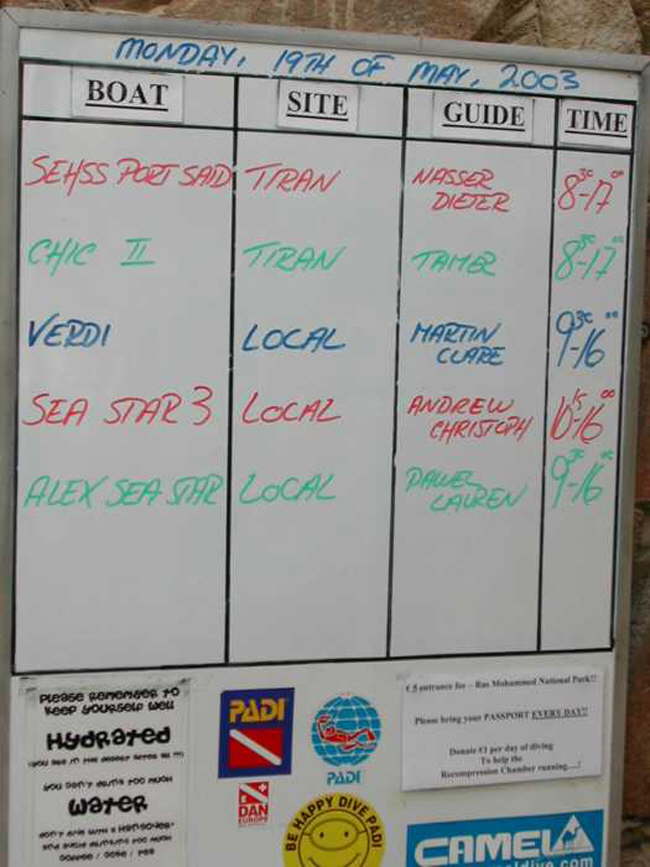 MONDAY, 19TH OF MAY, 2003
BOAT SITE GUIDE TIME
SEHSS PORT SAID TIRAN NASSER DIETER 8³⁰-17⁰⁰
CHIC II TIRAN TAMER 8³⁰-17⁰⁰
VERDI LOCAL MARTIN CLARE 9³⁰-16⁰⁰
SEA STAR 3 LOCAL ANDREW CHRISTOPH 10¹⁵-16⁰⁰
ALEX SEA STAR LOCAL PAWEL LAUREN 9³⁰-16⁰⁰
PLEASE REMEMBER TO
KEEP YOURSELF WELL
HYDRATED
YOU DON'T DRINK TOO MUCH
WATER
DON'T DIVE WITH A HANGOVER!
PADI
PADI
DAN
EUROPE
BE HAPPY DIVE PADI
€ 5 entrance fee – Ras Mohammed National Park!!
Please bring your PASSPORT EVERY DAY!!
Donate €1 per day of diving
To help the
Recompression Chamber running....!
CAMEL
dive.com